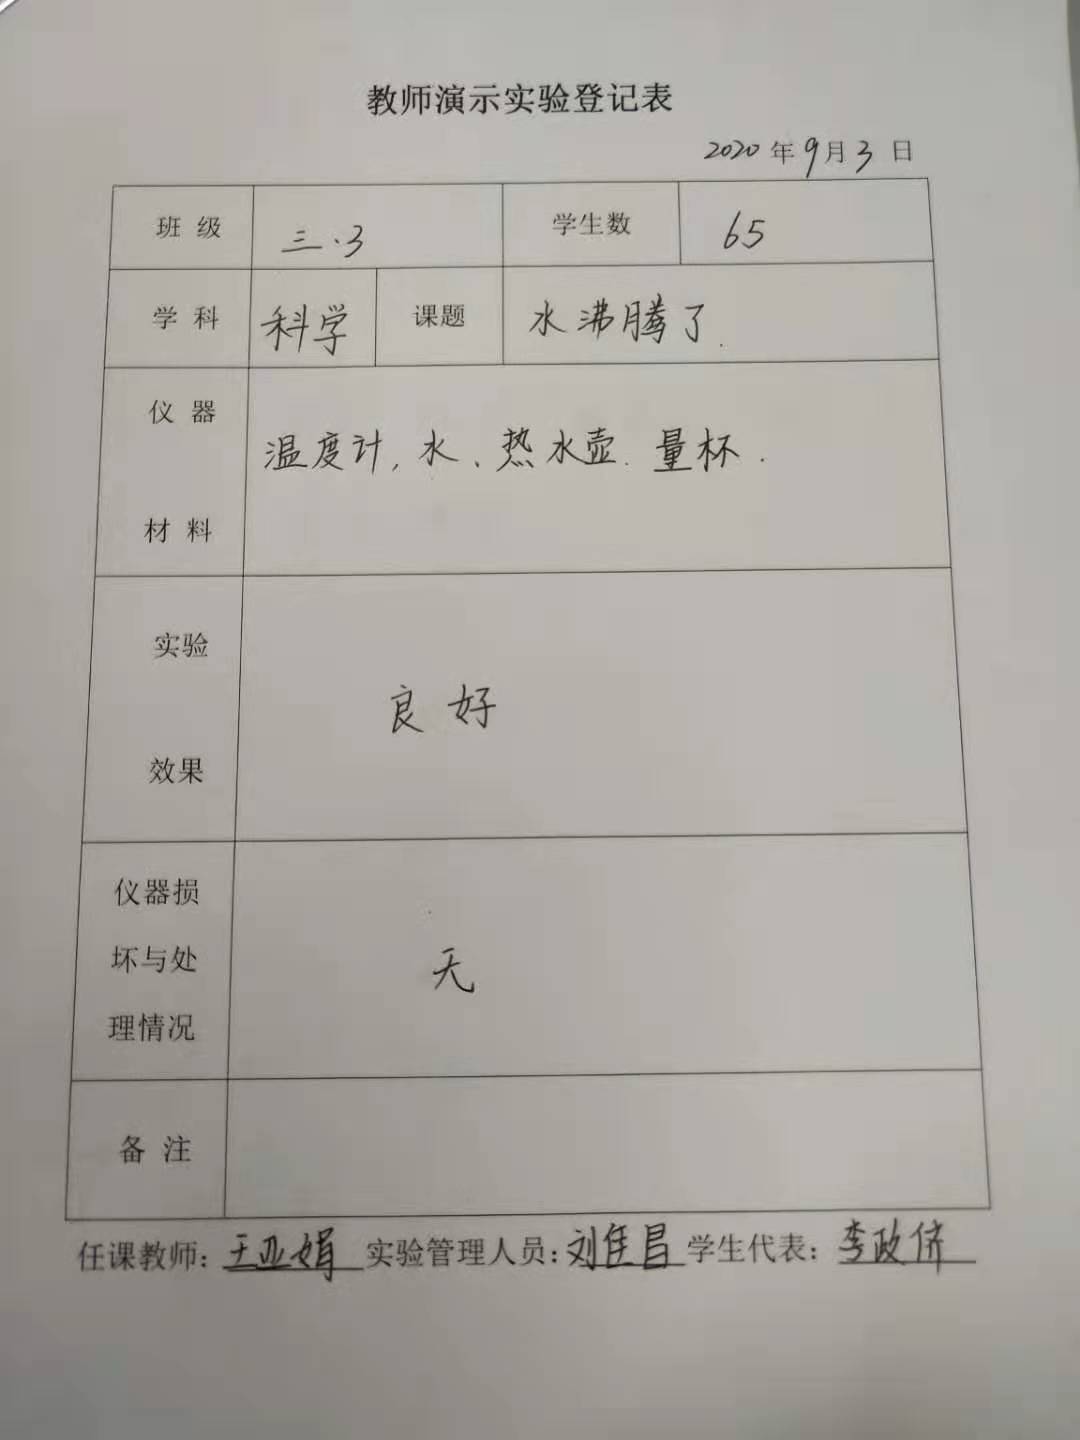 教师演示实验登记表
2020年9月3日
班 级 三.3 学生数 65
学 科 科学 课题 水沸腾了.
仪 器
温度计,水、热水壶.量杯.
材 料
实验
良好
效果
仪器损
坏与处
无
理情况
备 注
任课教师:王亚娟 实验管理人员:刘佳昌 学生代表:李政侪